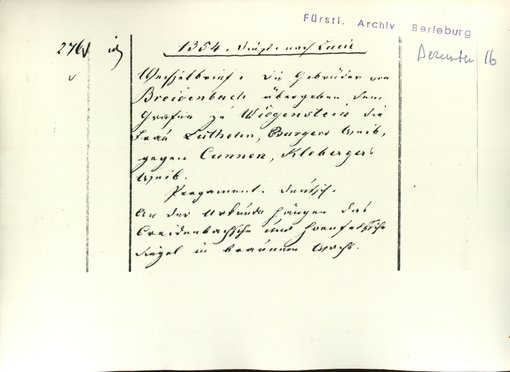 Fürstl. Archiv Berleburg
Dezember 16
276 1354. Dinst. nach Lucie
Wechselbrief. Die Gebrüder von
Breidenbach übergeben dem
Grafen zu Widgenstein die
Frau Lutheln, Burgers Weib,
gegen Cunnen, Klebergers
Weib.
Pergament. Deutsch.
An der Urkunde hängen das
Breidenbachsche und
Siegel in braunem Wachs.